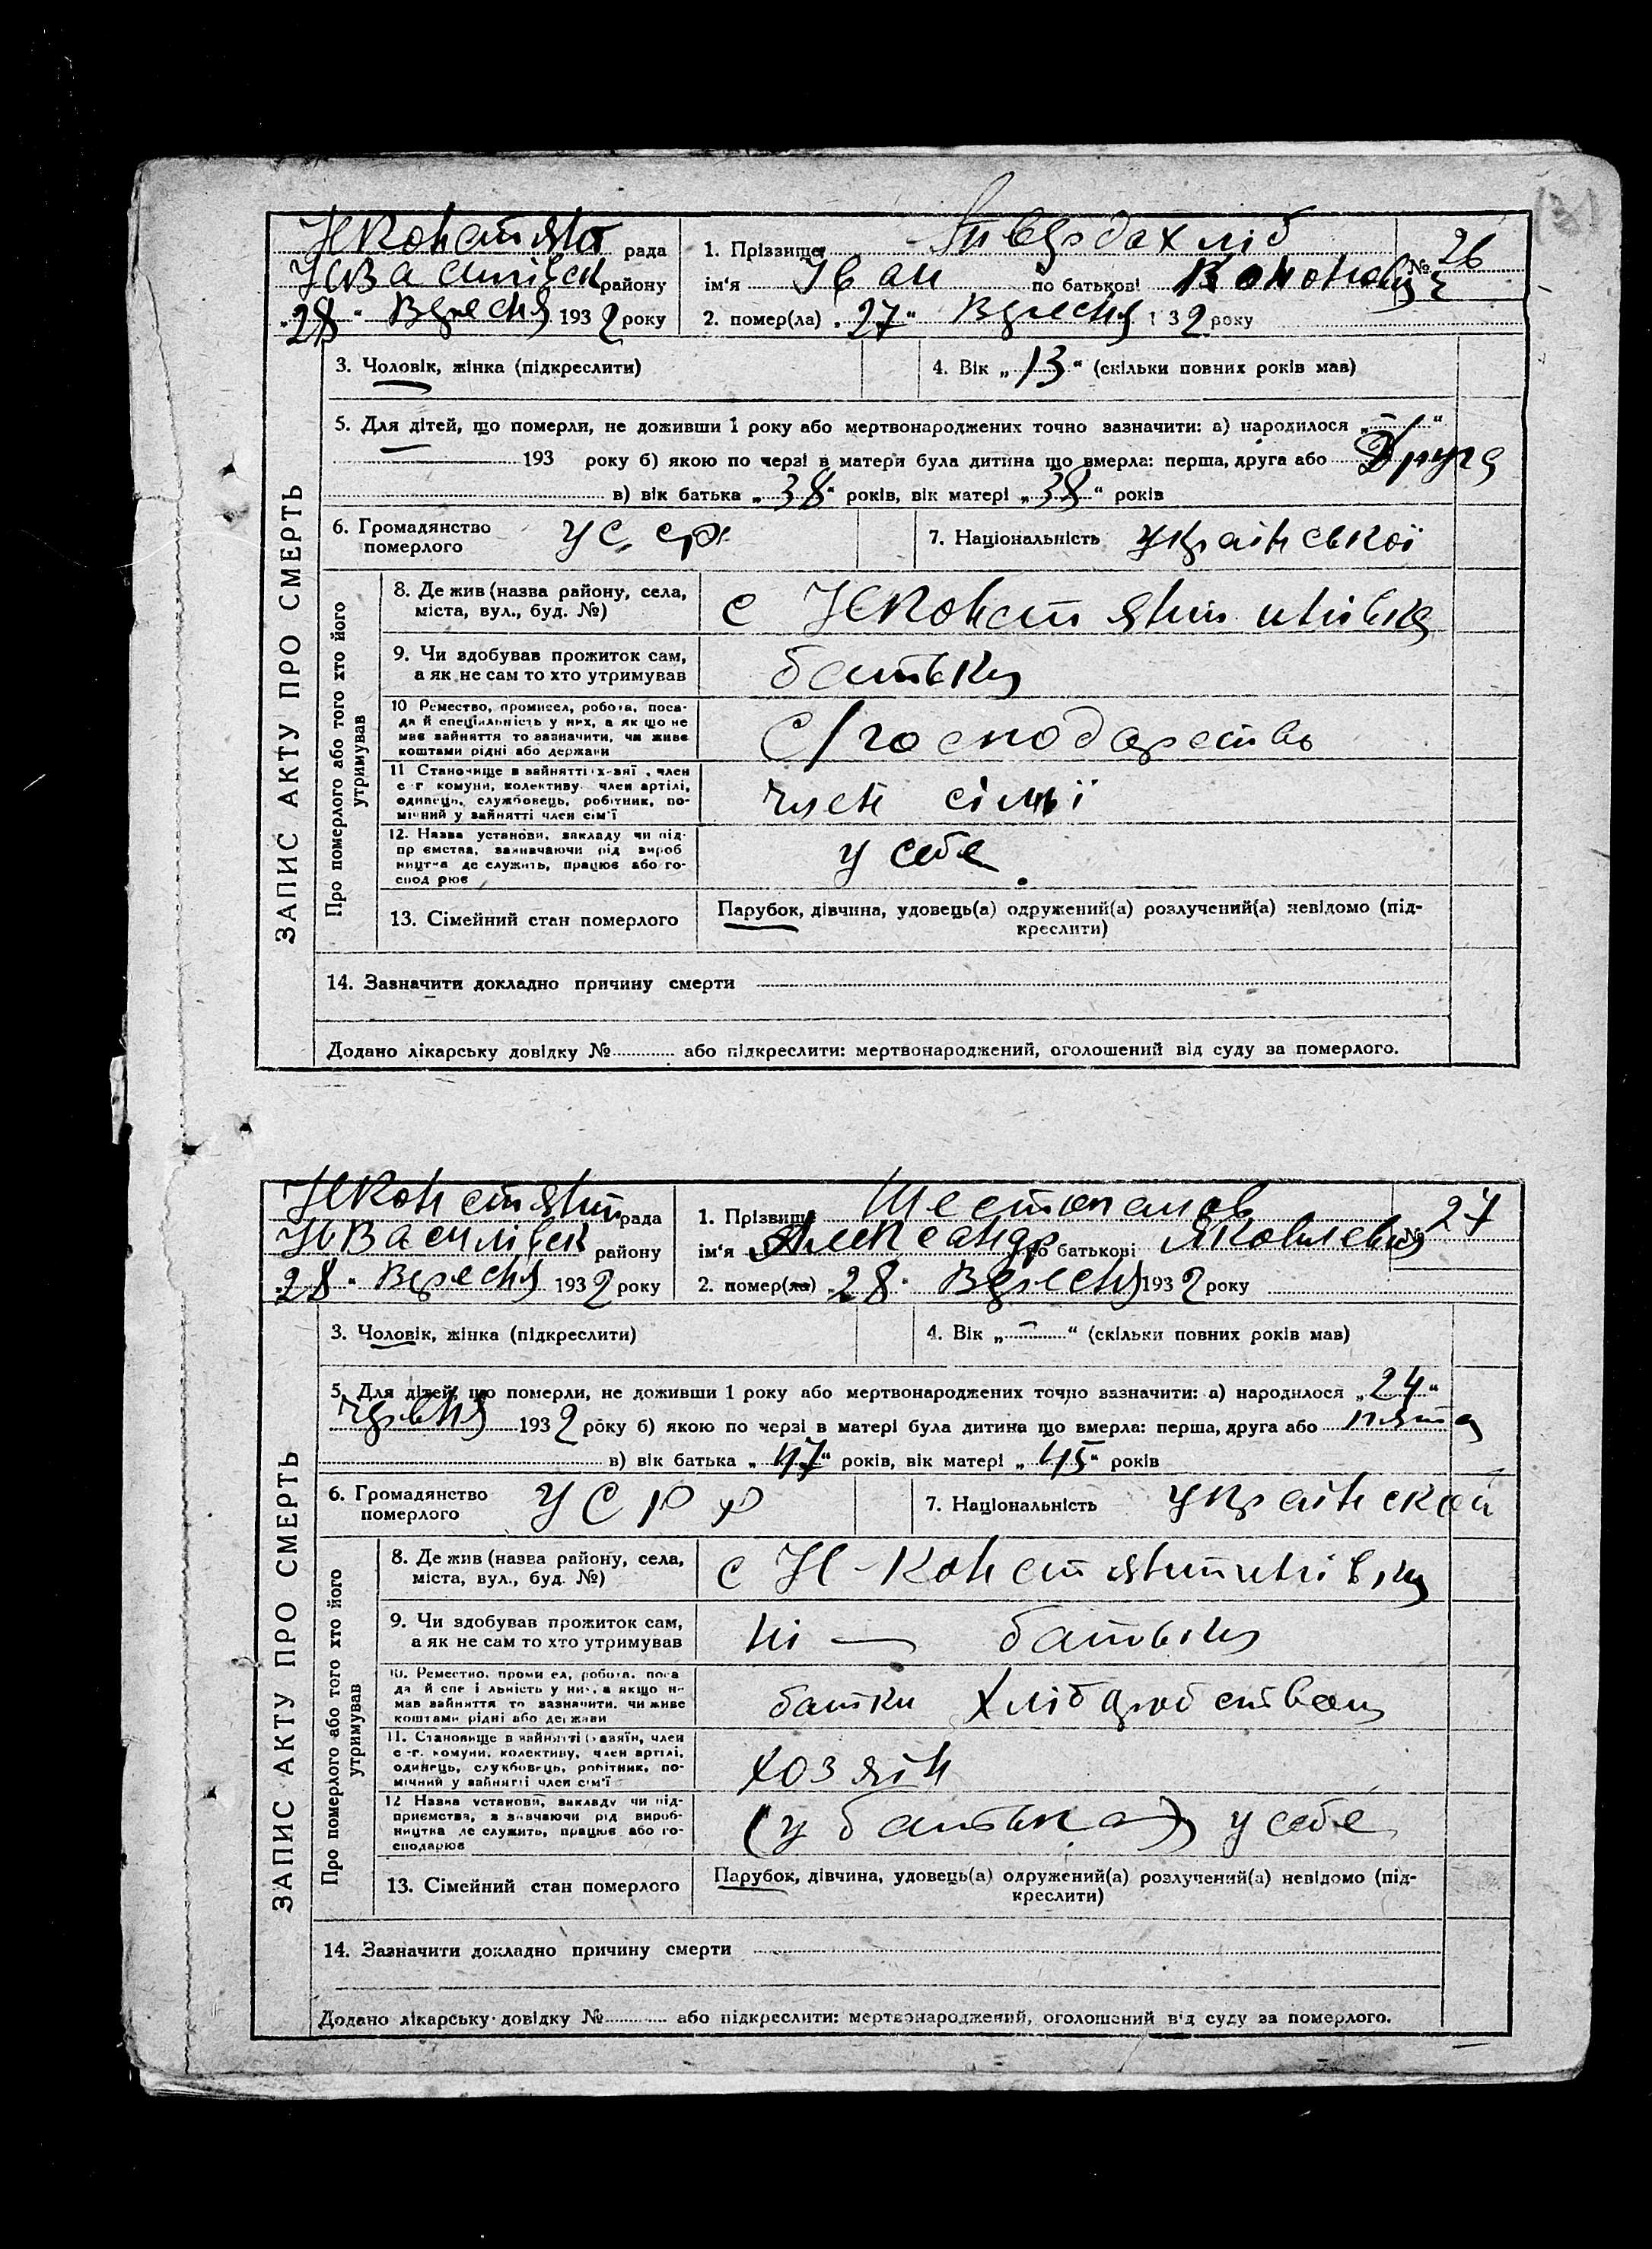 НКонстянт рада
НВасилівськ району
„28“ Вересня 1932 року
1. Прізвище Твердохліб
ім'я Іван по батькові Кононович
№ 26
2. помер(ла) „27“ Вересня 1 32 року
ЗАПИС АКТУ ПРО СМЕРТЬ
3. Чоловік, жінка (підкреслити)
4. Вік „13“ (скільки повних років мав)
5. Для дітей, що померли, не доживши 1 року або мертвонароджених точно зазначити: а) народилося „-“
193 року б) якою по черзі в матери була дитина що вмерла: перша, друга або Друга
в) вік батька „38“ років, вік матері „38“ років
6. Громадянство померлого УССР
7. Національність Української
Про померлого або того хто його утримував
8. Де жив (назва району, села,
міста, вул., буд. №)
с НКонстянтинівка
9. Чи здобував прожиток сам,
а як не сам то хто утримував
батьки
10 Ремество, промисел, робота, поса-
да й спеціяльність у них, а як що не
має зайняття то зазначити, чи живе
коштами рідні або держави
С/господарство
11 Становище в зайнятті х-зяї , член
с-г комуни, колективу член артілі,
одинець, службовець, робітник, по-
мічний у зайнятті член сім'ї
член сімї
12. Назва установи, закладу чи під-
пр ємства, зазначаючи рід вироб
ництва де служить, працює або го-
спод рює
у себе
13. Сімейний стан померлого
Парубок, дівчина, удовець(а) одружений(а) розлучений(а) невідомо (під-
креслити)
14. Зазначити докладно причину смерти
Додано лікарську довідку № або підкреслити: мертвонароджений, оголошений від суду за померлого.
НКонстянтин рада
НВасилівськ району
„28“ Вересня 1932 року
1. Прізвище Шестопалов
ім'я Александр по батькові Яковлевич
№ 27
2. помер(ла) „28“ Вересня 1932 року
ЗАПИС АКТУ ПРО СМЕРТЬ
3. Чоловік, жінка (підкреслити)
4. Вік „-“ (скільки повних років мав)
5. Для дітей, що померли, не доживши 1 року або мертвонароджених точно зазначити: а) народилося „24“
червня 1932 року б) якою по черзі в матері була дитина що вмерла: перша, друга або пята
в) вік батька „47“ років, вік матері „45“ років
6. Громадянство померлого УСРР
7. Національність Украінской
Про померлого або того хто його утримував
8. Де жив (назва району, села,
міста, вул., буд. №)
с Н-Констянтинівки
9. Чи здобував прожиток сам,
а як не сам то хто утримував
ні — батьки
10. Ремество, проми ел, робота, поса
да й спе і льність у них, а якщо н-
мав зайняття то зазначити, чи живе
коштами рідні або держави
батки хліборобством
11. Становище в зайнятті (хазяїн, член
с-г. комуни, колективу, член артілі,
одинець, службовець, робітник, по-
мічний у зайнятті член сім'ї
хозяін
12 Назва установи, закладу чи під-
приємства, зазначаючи рід вироб-
ництва де служить, працює або го-
сподарює
(у батька) у себе
13. Сімейний стан померлого
Парубок, дівчина, удовець(а) одружений(а) розлучений(а) невідомо (під-
креслити)
14. Зазначити докладно причину смерти
Додано лікарську довідку № або підкреслити: мертвонароджений, оголошений від суду за померлого.